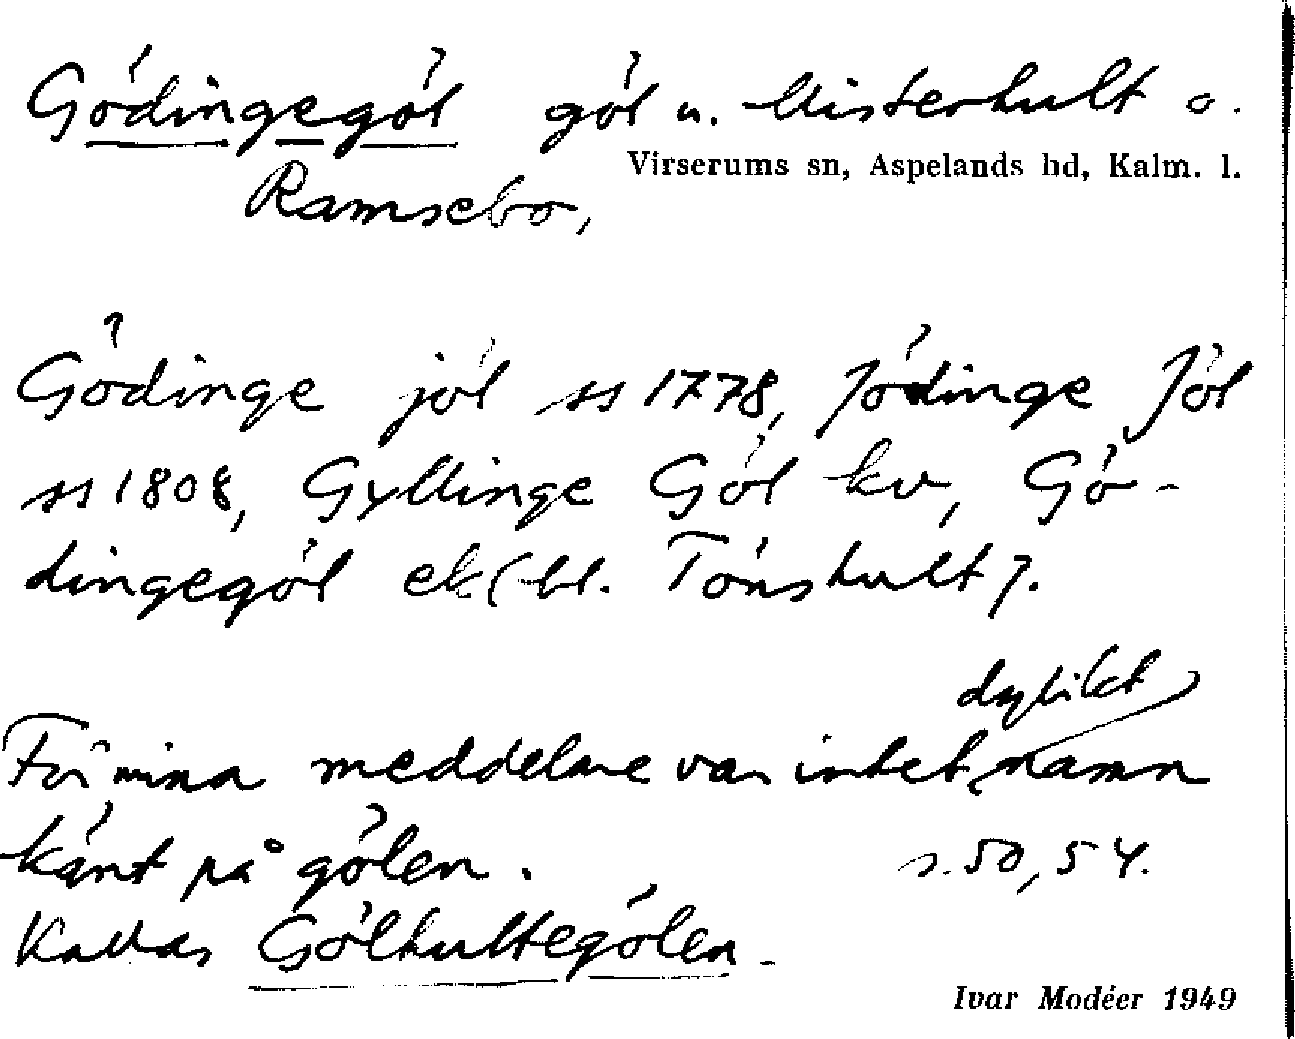 Gödingegöl göl u. Misterhult o.
Virserums sn, Aspelands hd, Kalm. l.
Ramsebo,
Gödinge jöl ss 1778, Jödinge Jöl
ss 1808, Gyllinge Göl kv, Gö-
dingegöl ek (bl. Tönshult).
dylikt
För mina meddelare var intet namn
känt på gölen.
s. 50, 54.
Kallas Gölhultegölen.
Ivar Modéer 1949